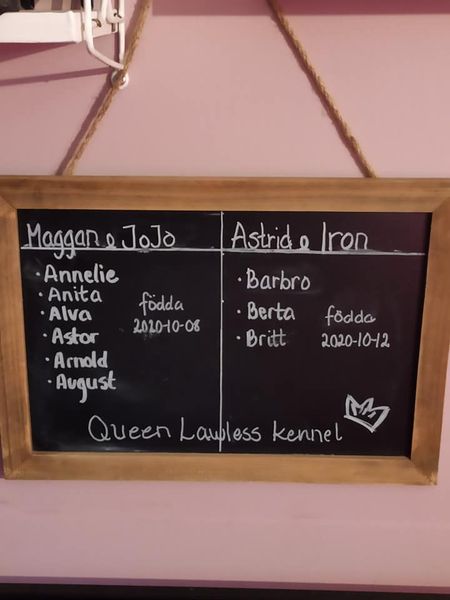 Maggan & JoJo
· Annelie
· Anita
· Alva
· Astor
· Arnold
· August
födda
2020-10-08
Astrid & Iron
· Barbro
· Berta
· Britt
födda
2020-10-12
Queen Lawless kennel